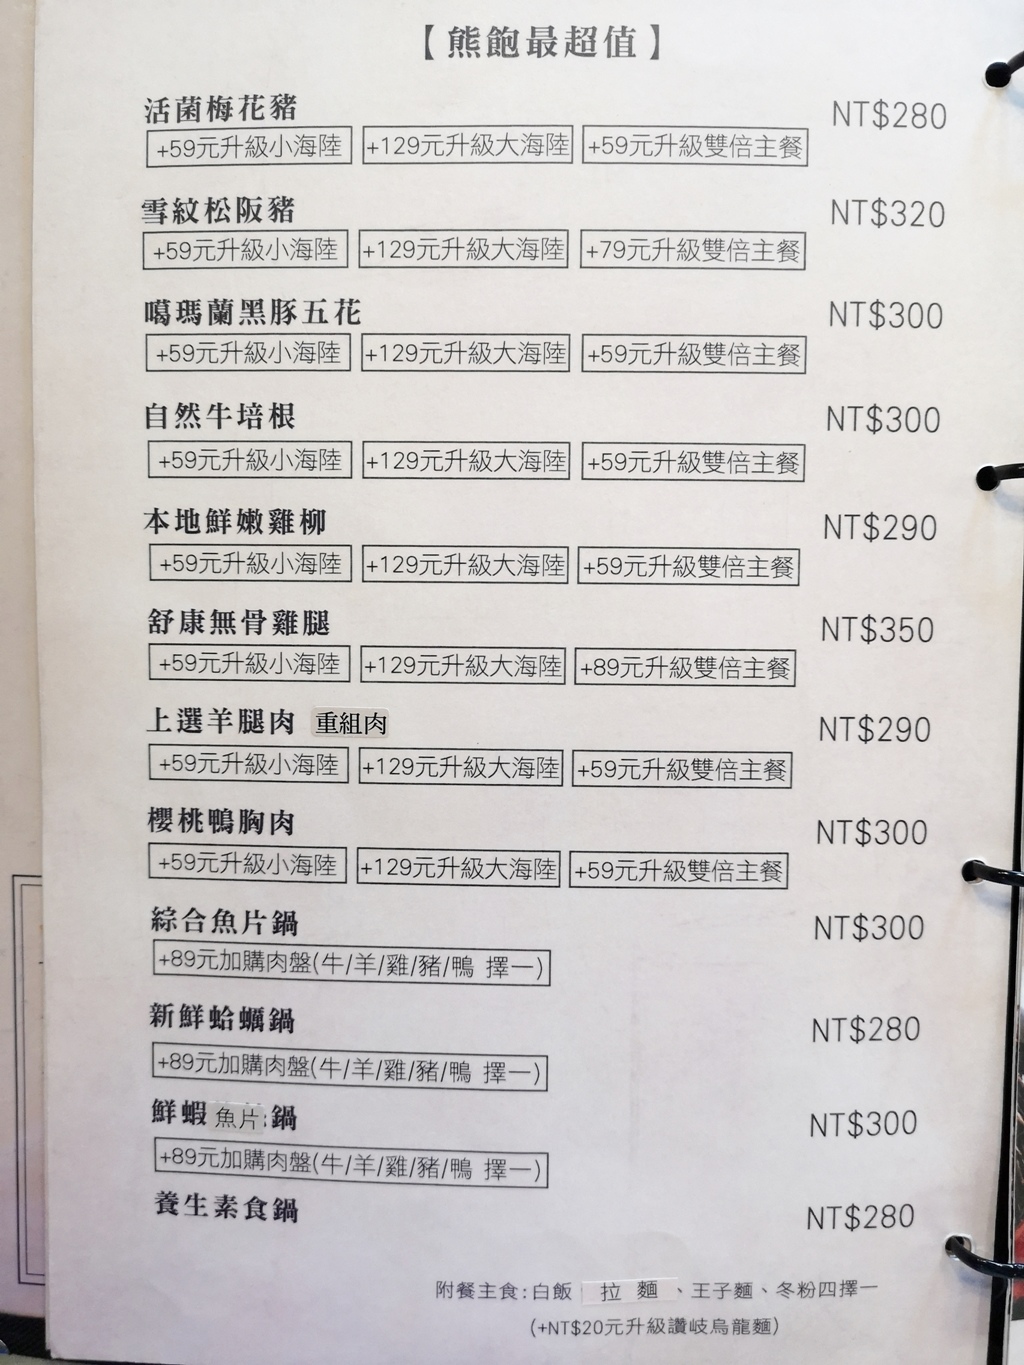 【熊飽最超值】
活菌梅花豬 NT$280
+59元升級小海陸 +129元升級大海陸 +59元升級雙倍主餐
雪紋松阪豬 NT$320
+59元升級小海陸 +129元升級大海陸 +79元升級雙倍主餐
噶瑪蘭黑豚五花 NT$300
+59元升級小海陸 +129元升級大海陸 +59元升級雙倍主餐
自然牛培根 NT$300
+59元升級小海陸 +129元升級大海陸 +59元升級雙倍主餐
本地鮮嫩雞柳 NT$290
+59元升級小海陸 +129元升級大海陸 +59元升級雙倍主餐
舒康無骨雞腿 NT$350
+59元升級小海陸 +129元升級大海陸 +89元升級雙倍主餐
上選羊腿肉 重組肉 NT$290
+59元升級小海陸 +129元升級大海陸 +59元升級雙倍主餐
櫻桃鴨胸肉 NT$300
+59元升級小海陸 +129元升級大海陸 +59元升級雙倍主餐
綜合魚片鍋 NT$300
+89元加購肉盤(牛/羊/雞/豬/鴨 擇一)
新鮮蛤蠣鍋 NT$280
+89元加購肉盤(牛/羊/雞/豬/鴨 擇一)
鮮蝦魚片鍋 NT$300
+89元加購肉盤(牛/羊/雞/豬/鴨 擇一)
養生素食鍋 NT$280
附餐主食:白飯 拉麵、王子麵、冬粉四擇一
(+NT$20元升級讚岐烏龍麵)